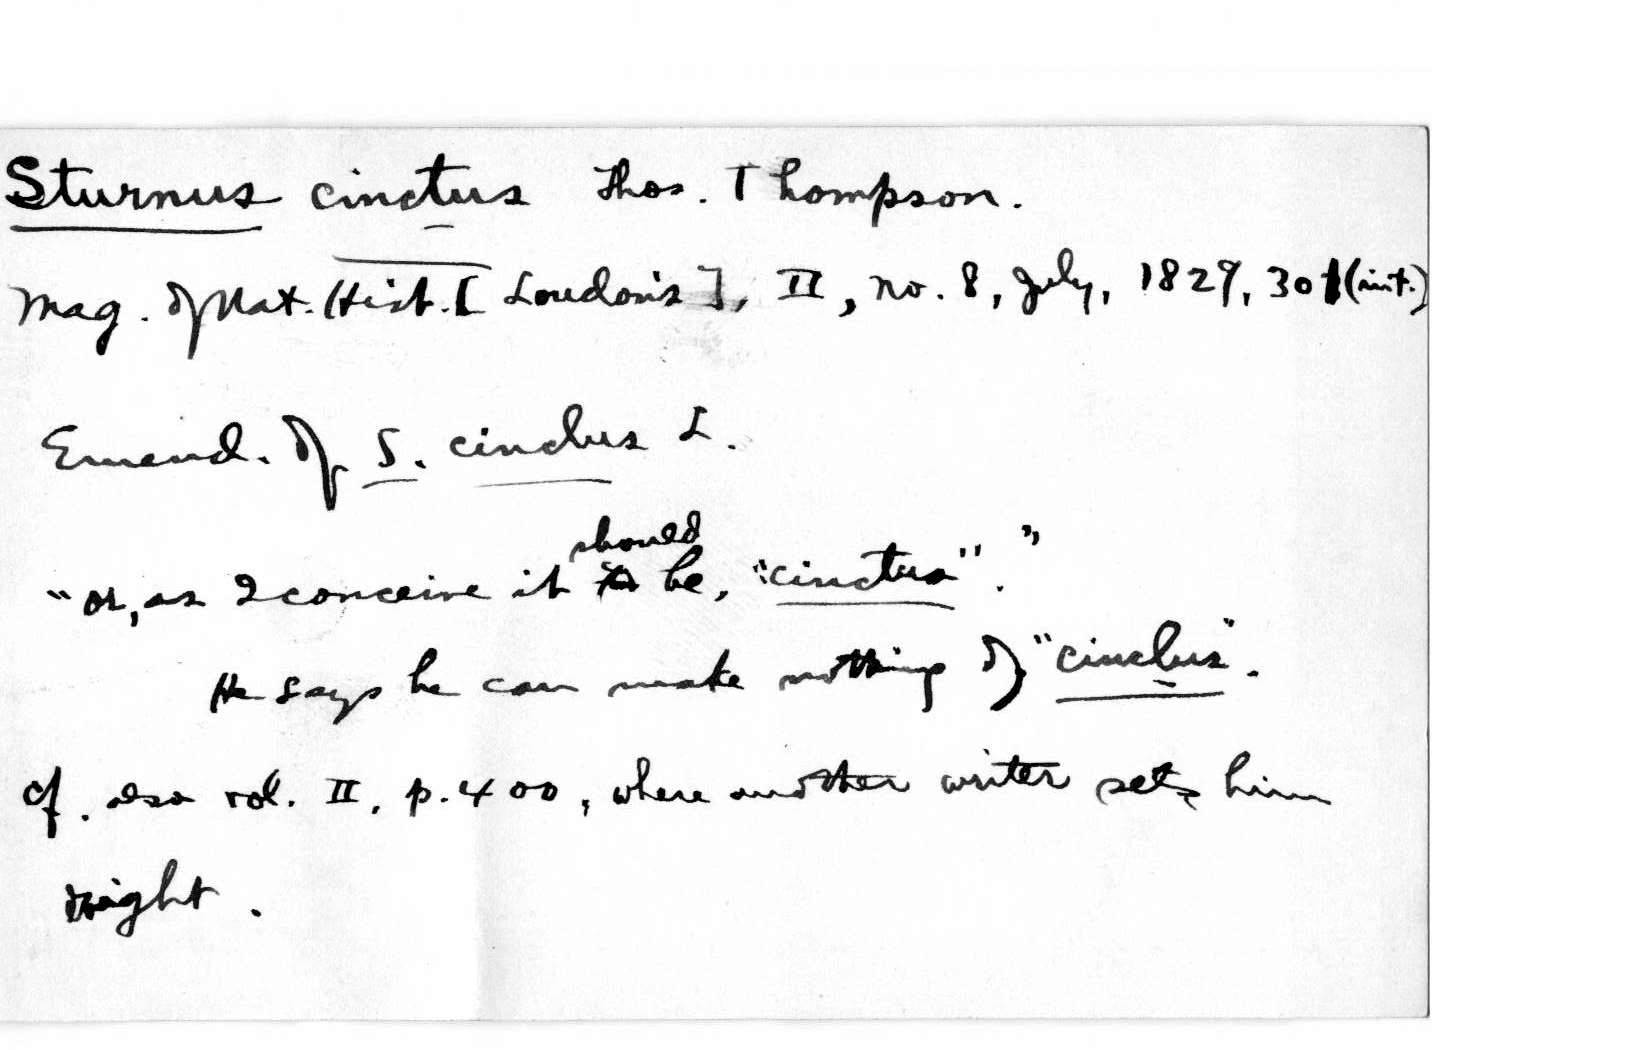 Sturnus cinctus Thos. Thompson.
Mag. of Nat. Hist. [Loudon's], II, no. 8, July, 1829, 301 (int.)
Emend. of S. cinclus L.
"or, as I conceive it should be, "cinctus"."
He says he can make nothing of "cinclus".
cf. also vol. II, p. 400, where another writer sets him
right.